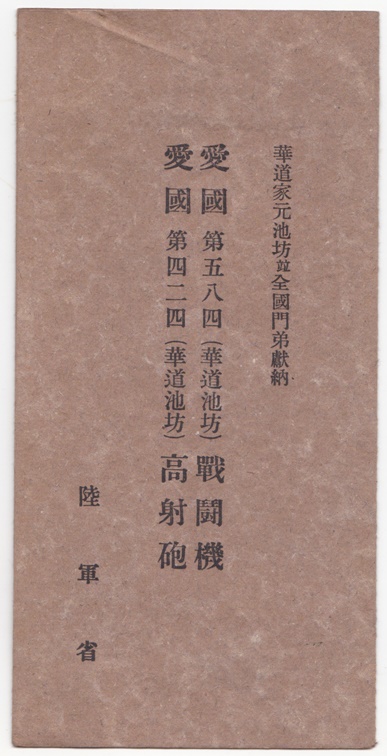 華道家元池坊竝全國門弟獻納
愛國第五八四（華道池坊）戰鬪機
愛國第四二四（華道池坊）高射砲
陸軍省